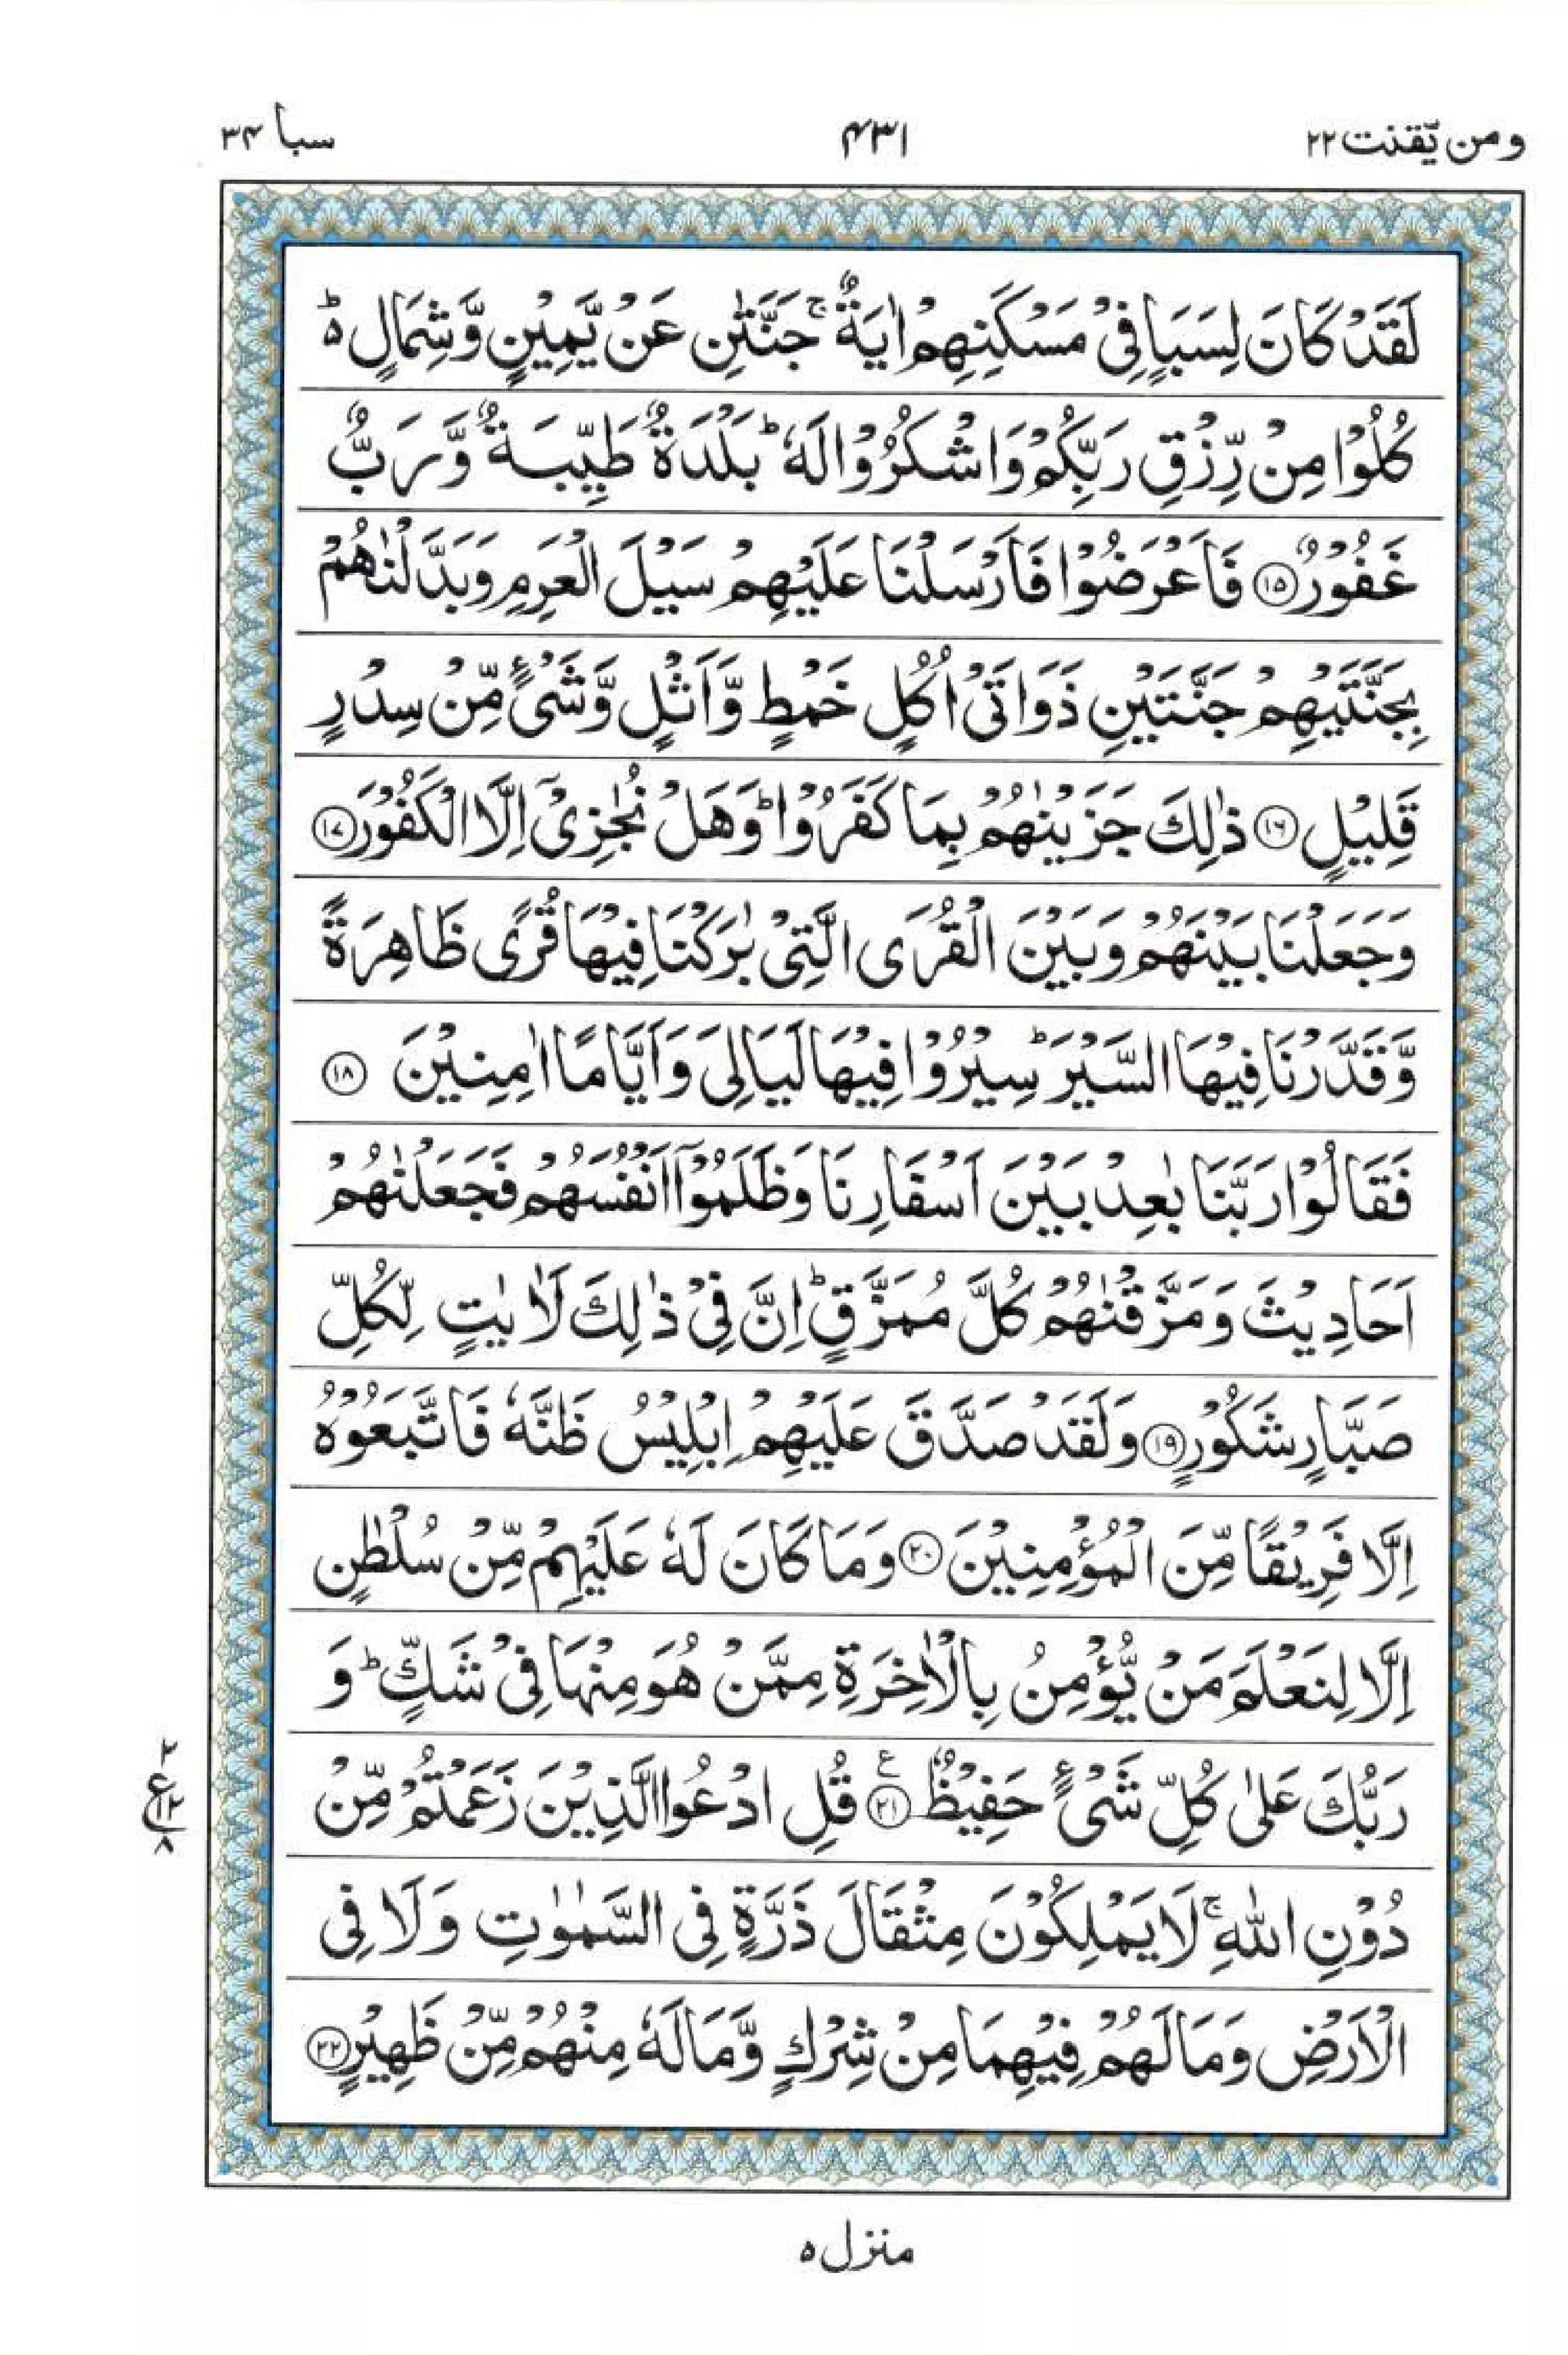 ومن يّقنت ٢٢ ٤٣١ سبا ٣٤
لَقَدْ كَانَ لِسَبَاٍ فِیْ مَسْكَنِهِمْ اٰیَةٌ ۚ جَنَّتٰنِ عَنْ یَّمِیْنٍ وَّشِمَالٍ ؕ
كُلُوْا مِنْ رِّزْقِ رَبِّكُمْ وَاشْكُرُوْا لَهٗ ؕ بَلْدَةٌ طَیِّبَةٌ وَّرَبٌّ
غَفُوْرٌ ۝۱۵ فَاَعْرَضُوْا فَاَرْسَلْنَا عَلَیْهِمْ سَیْلَ الْعَرِمِ وَبَدَّلْنٰهُمْ
بِجَنَّتَیْهِمْ جَنَّتَیْنِ ذَوَاتَیْ اُكُلٍ خَمْطٍ وَّاَثْلٍ وَّشَیْءٍ مِّنْ سِدْرٍ
قَلِیْلٍ ۝۱۶ ذٰلِكَ جَزَیْنٰهُمْ بِمَا كَفَرُوْا ؕ وَهَلْ نُجٰزِیْۤ اِلَّا الْكَفُوْرَ ۝۱۷
وَجَعَلْنَا بَیْنَهُمْ وَبَیْنَ الْقُرَی الَّتِیْ بٰرَكْنَا فِیْهَا قُرًی ظَاهِرَةً
وَّقَدَّرْنَا فِیْهَا السَّیْرَ ؕ سِیْرُوْا فِیْهَا لَیَالِیَ وَاَیَّامًا اٰمِنِیْنَ ۝۱۸
فَقَالُوْا رَبَّنَا بٰعِدْ بَیْنَ اَسْفَارِنَا وَظَلَمُوْۤا اَنْفُسَهُمْ فَجَعَلْنٰهُمْ
اَحَادِیْثَ وَمَزَّقْنٰهُمْ كُلَّ مُمَزَّقٍ ؕ اِنَّ فِیْ ذٰلِكَ لَاٰیٰتٍ لِّكُلِّ
صَبَّارٍ شَكُوْرٍ ۝۱۹ وَلَقَدْ صَدَّقَ عَلَیْهِمْ اِبْلِیْسُ ظَنَّهٗ فَاتَّبَعُوْهُ
اِلَّا فَرِیْقًا مِّنَ الْمُؤْمِنِیْنَ ۝۲۰ وَمَا كَانَ لَهٗ عَلَیْهِمْ مِّنْ سُلْطٰنٍ
اِلَّا لِنَعْلَمَ مَنْ یُّؤْمِنُ بِالْاٰخِرَةِ مِمَّنْ هُوَ مِنْهَا فِیْ شَكٍّ ؕ وَ
رَبُّكَ عَلٰی كُلِّ شَیْءٍ حَفِیْظٌ ۝۲۱ ع قُلِ ادْعُوا الَّذِیْنَ زَعَمْتُمْ مِّنْ
دُوْنِ اللّٰهِ ۚ لَا یَمْلِكُوْنَ مِثْقَالَ ذَرَّةٍ فِی السَّمٰوٰتِ وَلَا فِی
الْاَرْضِ وَمَا لَهُمْ فِیْهِمَا مِنْ شِرْكٍ وَّمَا لَهٗ مِنْهُمْ مِّنْ ظَهِیْرٍ ۝۲۲
٢
ع ١٢
٨
منزل ٥